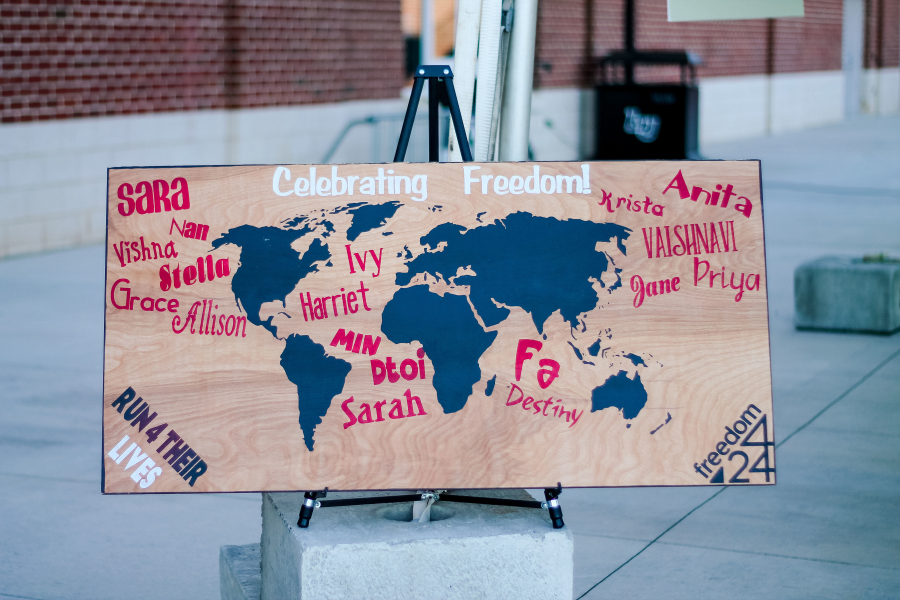 Celebrating Freedom!
SARA
Nan
Vishna
Stella
Grace
Allison
Ivy
Harriet
MIN
Dtoi
Sarah
Fa
Destiny
Krista
Anita
VAISHNAVI
Jane
Priya
RUN 4 THEIR
LIVES
freedom
424